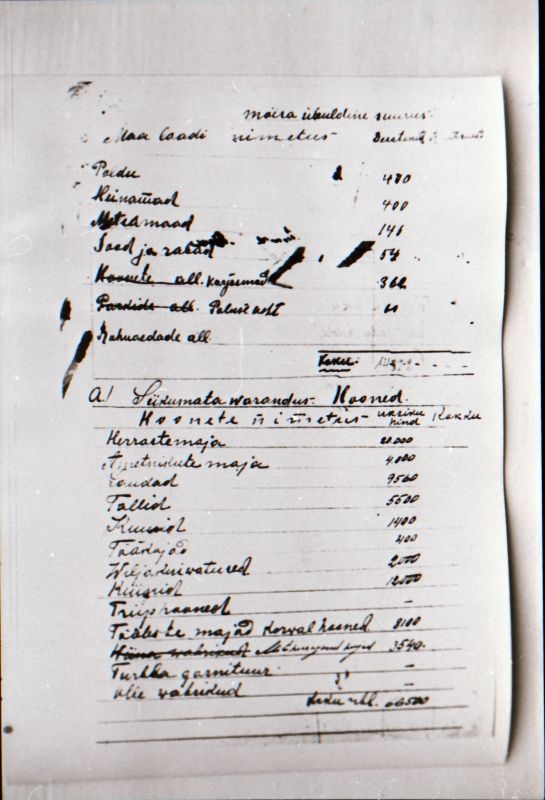 mõisa üleüldine suurus.
Maa laadi nimetus
Põldu 470
Heinamad 400
Metsamaad 146
Sood ja rabad 54
Hoonete all. Karjasmad 362
Pardide all.
Rahnaedade all.
Kokku:
A) Liikumata warandus. Hooned.
Hoonete nimetus wäärtus hind Kokku
Herrastemaja 20.000
Ametnikute maja 4.000
Laudad 9560
Tallid 5500
Kuurid 1400
Töökojad 400
Wiljakuivatused 2000
Küünid 12000
Triiphooned —
Tööliste majad kõrval hooned 8100
3540.
Turbba garnituur —
Kokku rbl. 66500